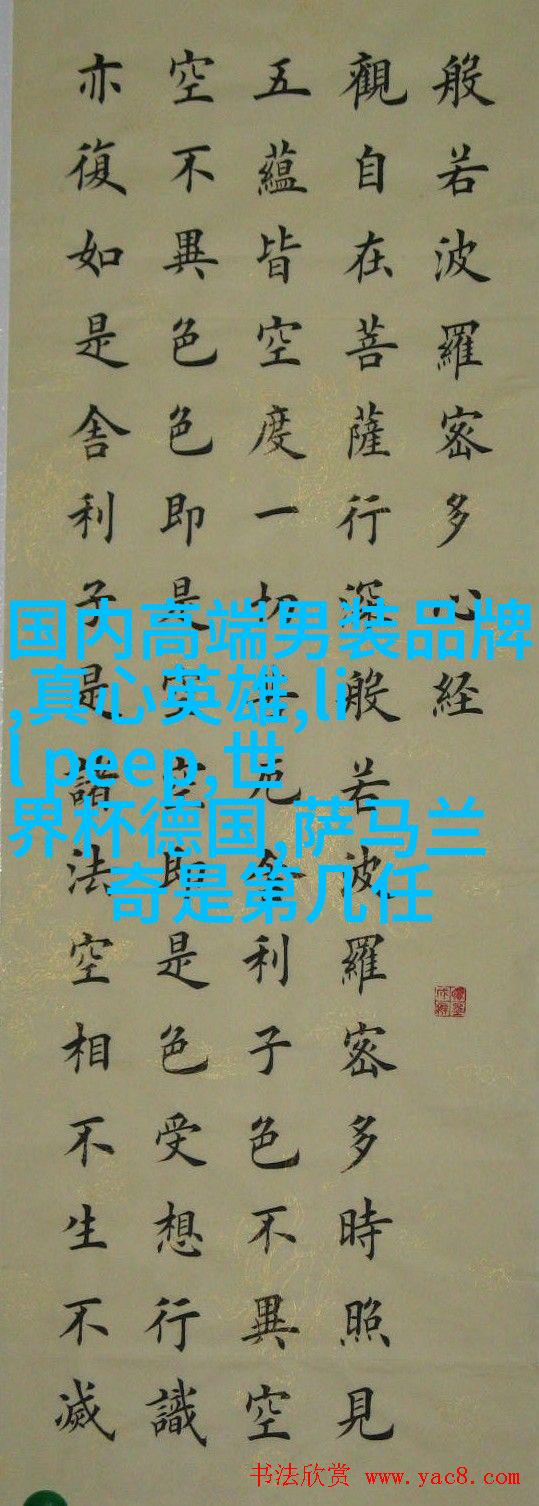 般若波羅密多心経
觀自在菩薩行深般若波羅密多時照見
五蘊皆空度一切苦厄舍利子色不異空
空不異色色即是空空即是色受想行識
亦復如是舍利子是諸法空相不生不滅
国内高端男装品牌
,真心英雄,li
l peep,世
界杯德国,萨马兰
奇是第几任
书法欣赏 www.yac8.com